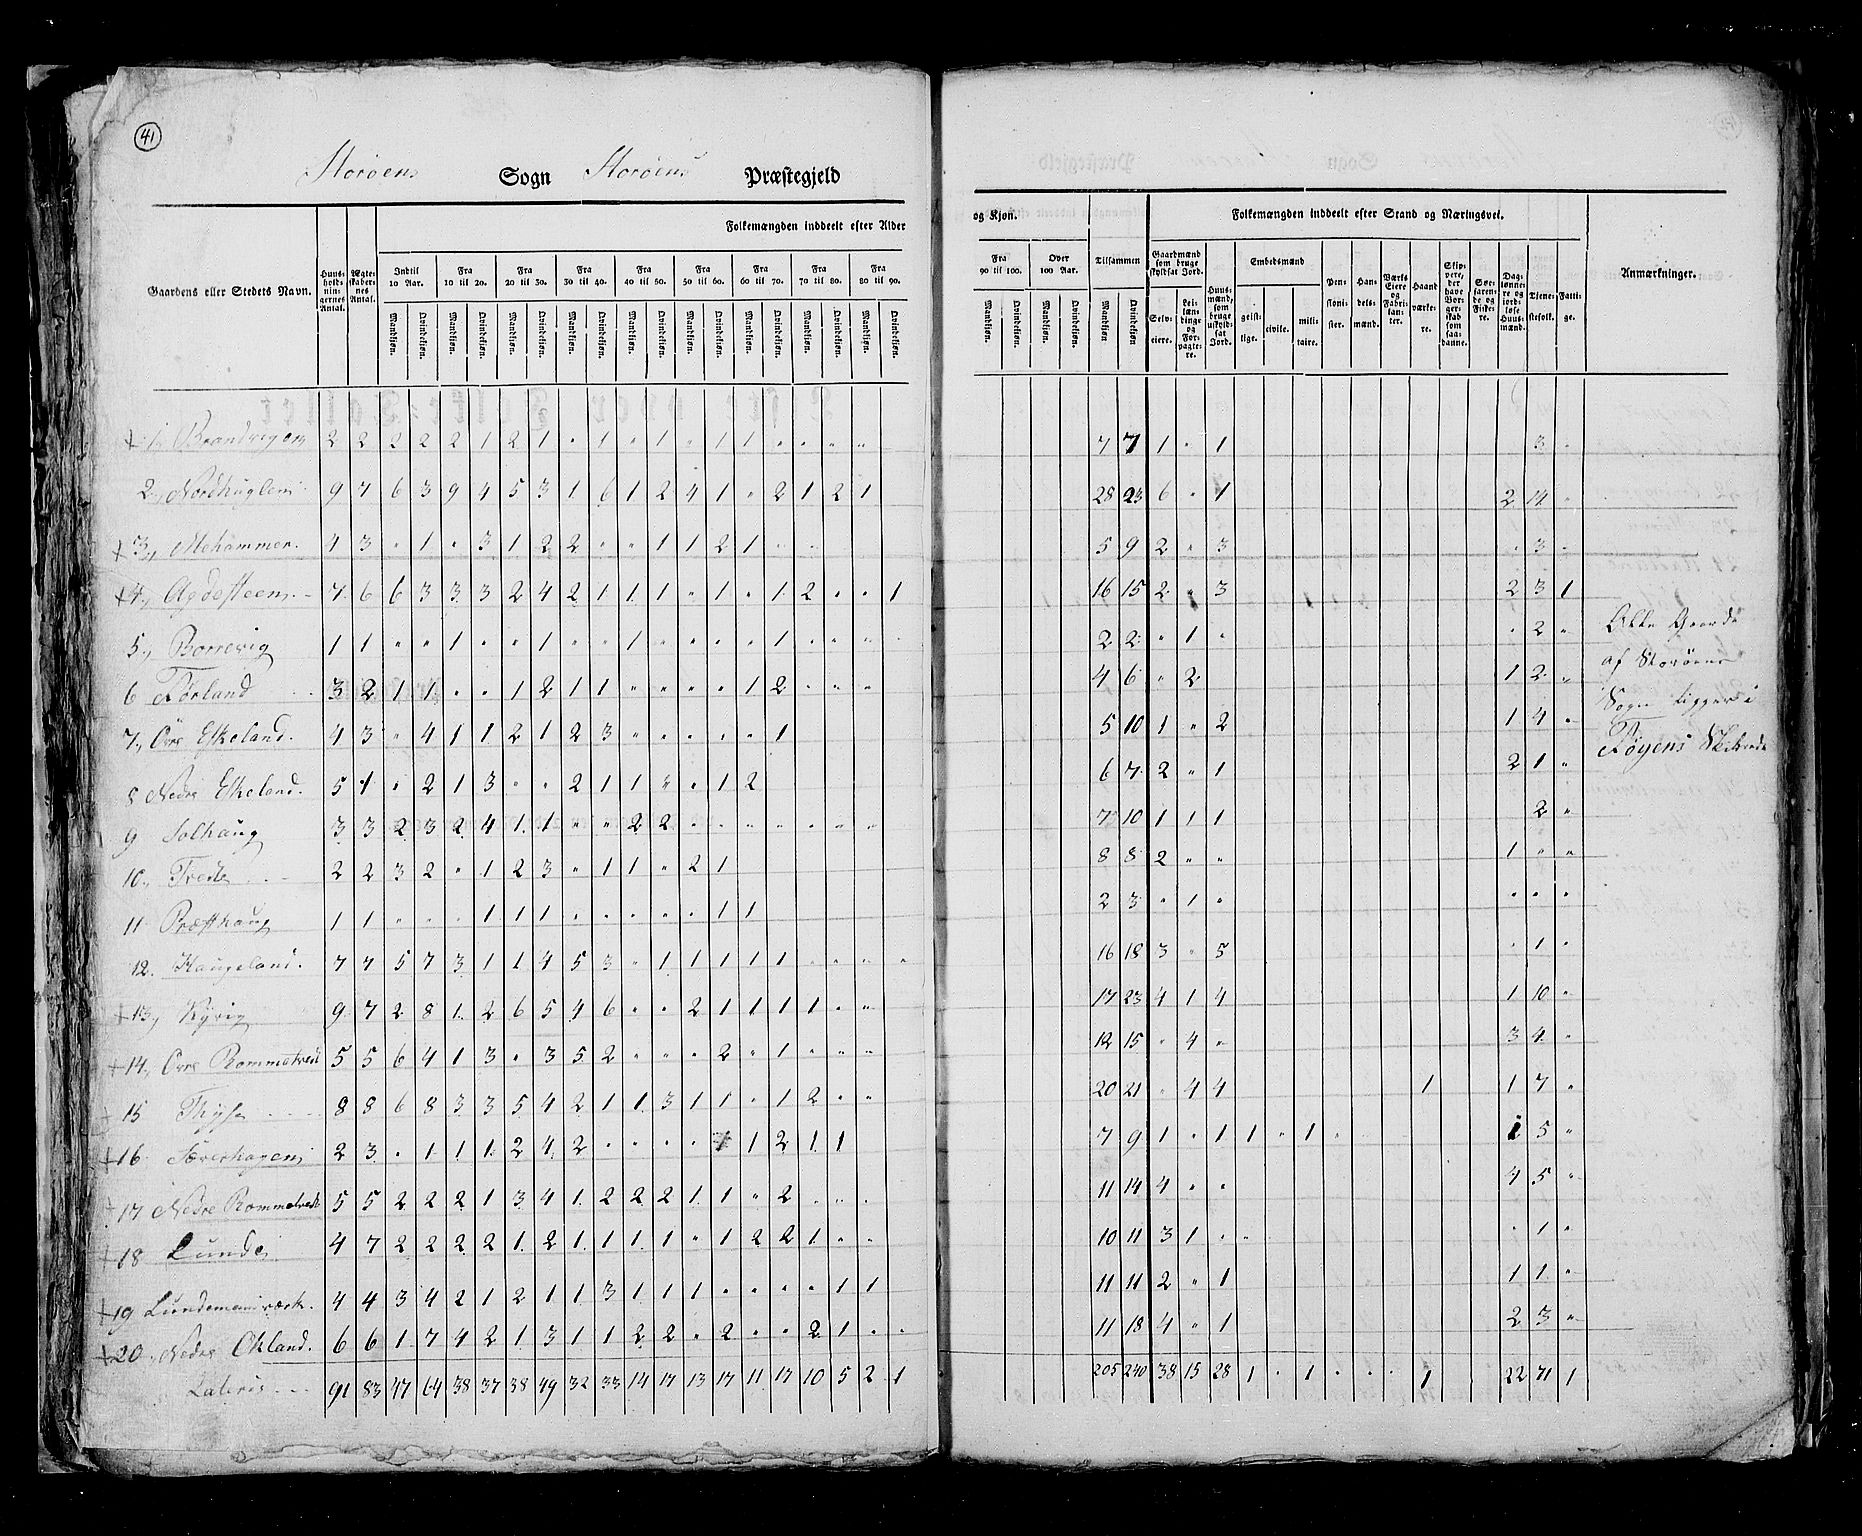 41
Storöens Sogn Storöens Præstegjeld
Folkemængden inddeelt efter Alder
og Kjøn.
Folkemængden inddeelt efter Stand og Næringsvei.
Gaardens eller Stedets Navn. Huus-holdnin-gernes Antal. Ægte-skaber-nes Antal. Indtil 10 Aar. Fra 10 til 20. Fra 20 til 30. Fra 30 til 40. Fra 40 til 50. Fra 50 til 60. Fra 60 til 70. Fra 70 til 80. Fra 80 til 90.
Fra 90 til 100. Over 100 Aar. Tilsammen Gaardmænd som bruge skyldsat Jord. Huusmænd, som bruge uskyldsat Jord. Embedsmænd Pensionister. Handelsmænd. Værks Eiere og Fabrikanter. Haandværkere. Skippere, der have Borgerskab som saadanne. Søefarende og Fiskere. Daglønnere og jordløse Huusmænd. Tjenestefolk. Fattige. Anmærkninger.
Mandkjøn. Qvindekjøn. Mandkjøn. Qvindekjøn. Mandkjøn. Qvindekjøn. Mandkjøn. Qvindekjøn. Mandkjøn. Qvindekjøn. Mandkjøn. Qvindekjøn. Mandkjøn. Qvindekjøn. Mandkjøn. Qvindekjøn. Mandkjøn. Qvindekjøn.
Mandkjøn. Qvindekjøn. Mandkjøn. Qvindekjøn. Mandkjøn Qvindekjøn. Selveiere. Leilændinge og Forpagtere. geistlige. civile. militaire.
1, 2 2 2 2 2 1 2 1 " 1 " 1 " 1 1 " " " " 7 7 1 " 1 3 "
2, Nordhuglen 9 7 6 3 9 4 5 3 1 6 1 2 4 1 " 2 1 2 1 28 23 6 " 1 2 14 "
3, Mehammer. 4 3 " 1 " 3 1 2 2 " " 1 1 2 1 " " 5 9 2 " 3 " 3 "
4, Agdesteen 7 6 6 3 3 3 2 4 2 1 1 1 " 1 " 1 2 " " 1 16 15 2 " 3 2 3 1
5, Borrevig 1 1 " " 1 " " 1 " " 1 " " " " 1 " " " " 2 2 " 1 " " 2 "
6 Førland 3 2 1 1 " " 1 2 1 1 " " " " 1 2 " " " 4 6 " 2 1 2 "
7, Övre Eskeland. 4 3 " 4 1 1 2 1 2 3 " " " " " 1 5 10 1 " 2 1 4 "
8 Nedre Eskeland. 5 1 " 2 1 3 " " 2 1 1 " " 1 2 6 7 2 " 1 2 1 "
9 Solhaug 3 3 2 3 2 4 1 1 " " 2 2 " " " " " " " 7 10 1 1 1 2 "
10, 2 2 3 2 " 1 2 3 " 1 1 " 2 1 8 8 2 " " 1 " "
11 Præsthaug 1 1 " " " 1 1 1 " " " " " 1 1 2 3 " 1 " " " "
12. Haugeland. 7 7 5 7 3 1 1 4 5 3 " 1 1 1 1 1 " " " " 16 18 3 " 5 " 1 "
13, Kyvig 9 7 2 8 1 2 6 5 4 6 " " 2 1 1 1 1 " " 17 23 4 1 4 1 10 "
14, Övre Rommetvedt 5 5 6 4 1 3 " 3 5 2 " " " 2 " 1 " " " 12 15 " 4 " 3 4 "
15 8 8 6 8 3 3 5 4 2 1 1 3 1 1 " 1 2 " " 20 21 " 4 4 1 1 7 "
16 Sæverhagen 2 3 " 1 1 1 2 4 2 " " " " 1 1 2 1 1 7 9 1 " 1 1 " 1 " 5 "
17 Nedre Rommetvedt 5 5 2 2 2 1 3 4 1 2 2 2 1 1 " 2 " " " 11 14 4 " " 4 5 "
18 Lunde 4 7 2 2 2 2 1 2 1 1 1 1 " 1 2 2 1 " " 10 11 3 1 " " " 1 "
19 Lundemaniværk. 4 4 3 4 2 1 2 1 1 3 1 1 1 " " " " 1 1 11 11 2 " 1 1 1 "
20, Nedre Økland. 6 6 1 7 4 2 1 3 1 1 2 2 " 2 " " 2 1 " " 11 18 4 " 1 2 3 "
Lateris 91 83 47 64 38 37 38 49 32 33 14 17 13 17 11 17 10 5 2 1 205 240 38 15 28 1 " 1 " " " 1 22 71 1
Alle Gaarde
af Storöens
Sogn ligger i
Føyens Skibrede